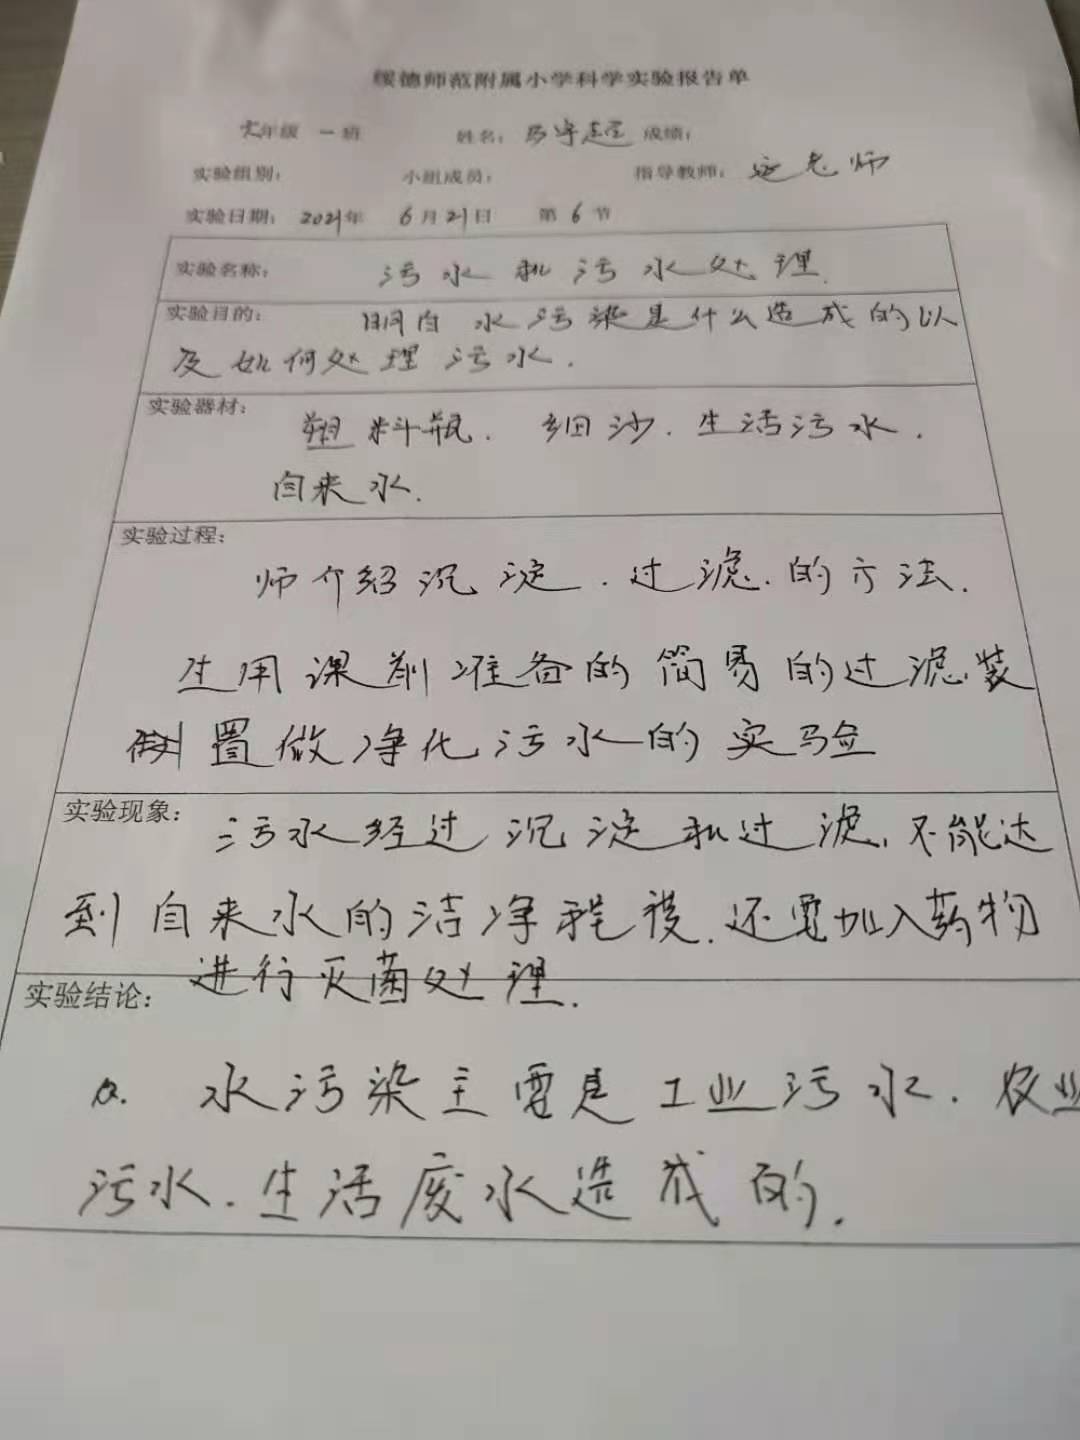 绥德师范附属小学科学实验报告单
六年级 一班 姓名：马宇超 成绩：
实验组别： 小组成员： 指导教师： 老师
实验日期：2021年 6月21日 第6节
实验名称： 污水和污水处理.
实验目的： 明白水污染是什么造成的以
及如何处理污水.
实验器材： 塑料瓶. 细沙. 生活污水.
自来水.
实验过程：
师介绍沉淀.过滤.的方法.
生用课前准备的简易的过滤装
置做净化污水的实验
实验现象： 污水经过沉淀和过滤,不能达
到自来水的洁净程度.还要加入药物
进行灭菌处理.
实验结论：
a. 水污染主要是工业污水.农业
污水.生活废水造成的.